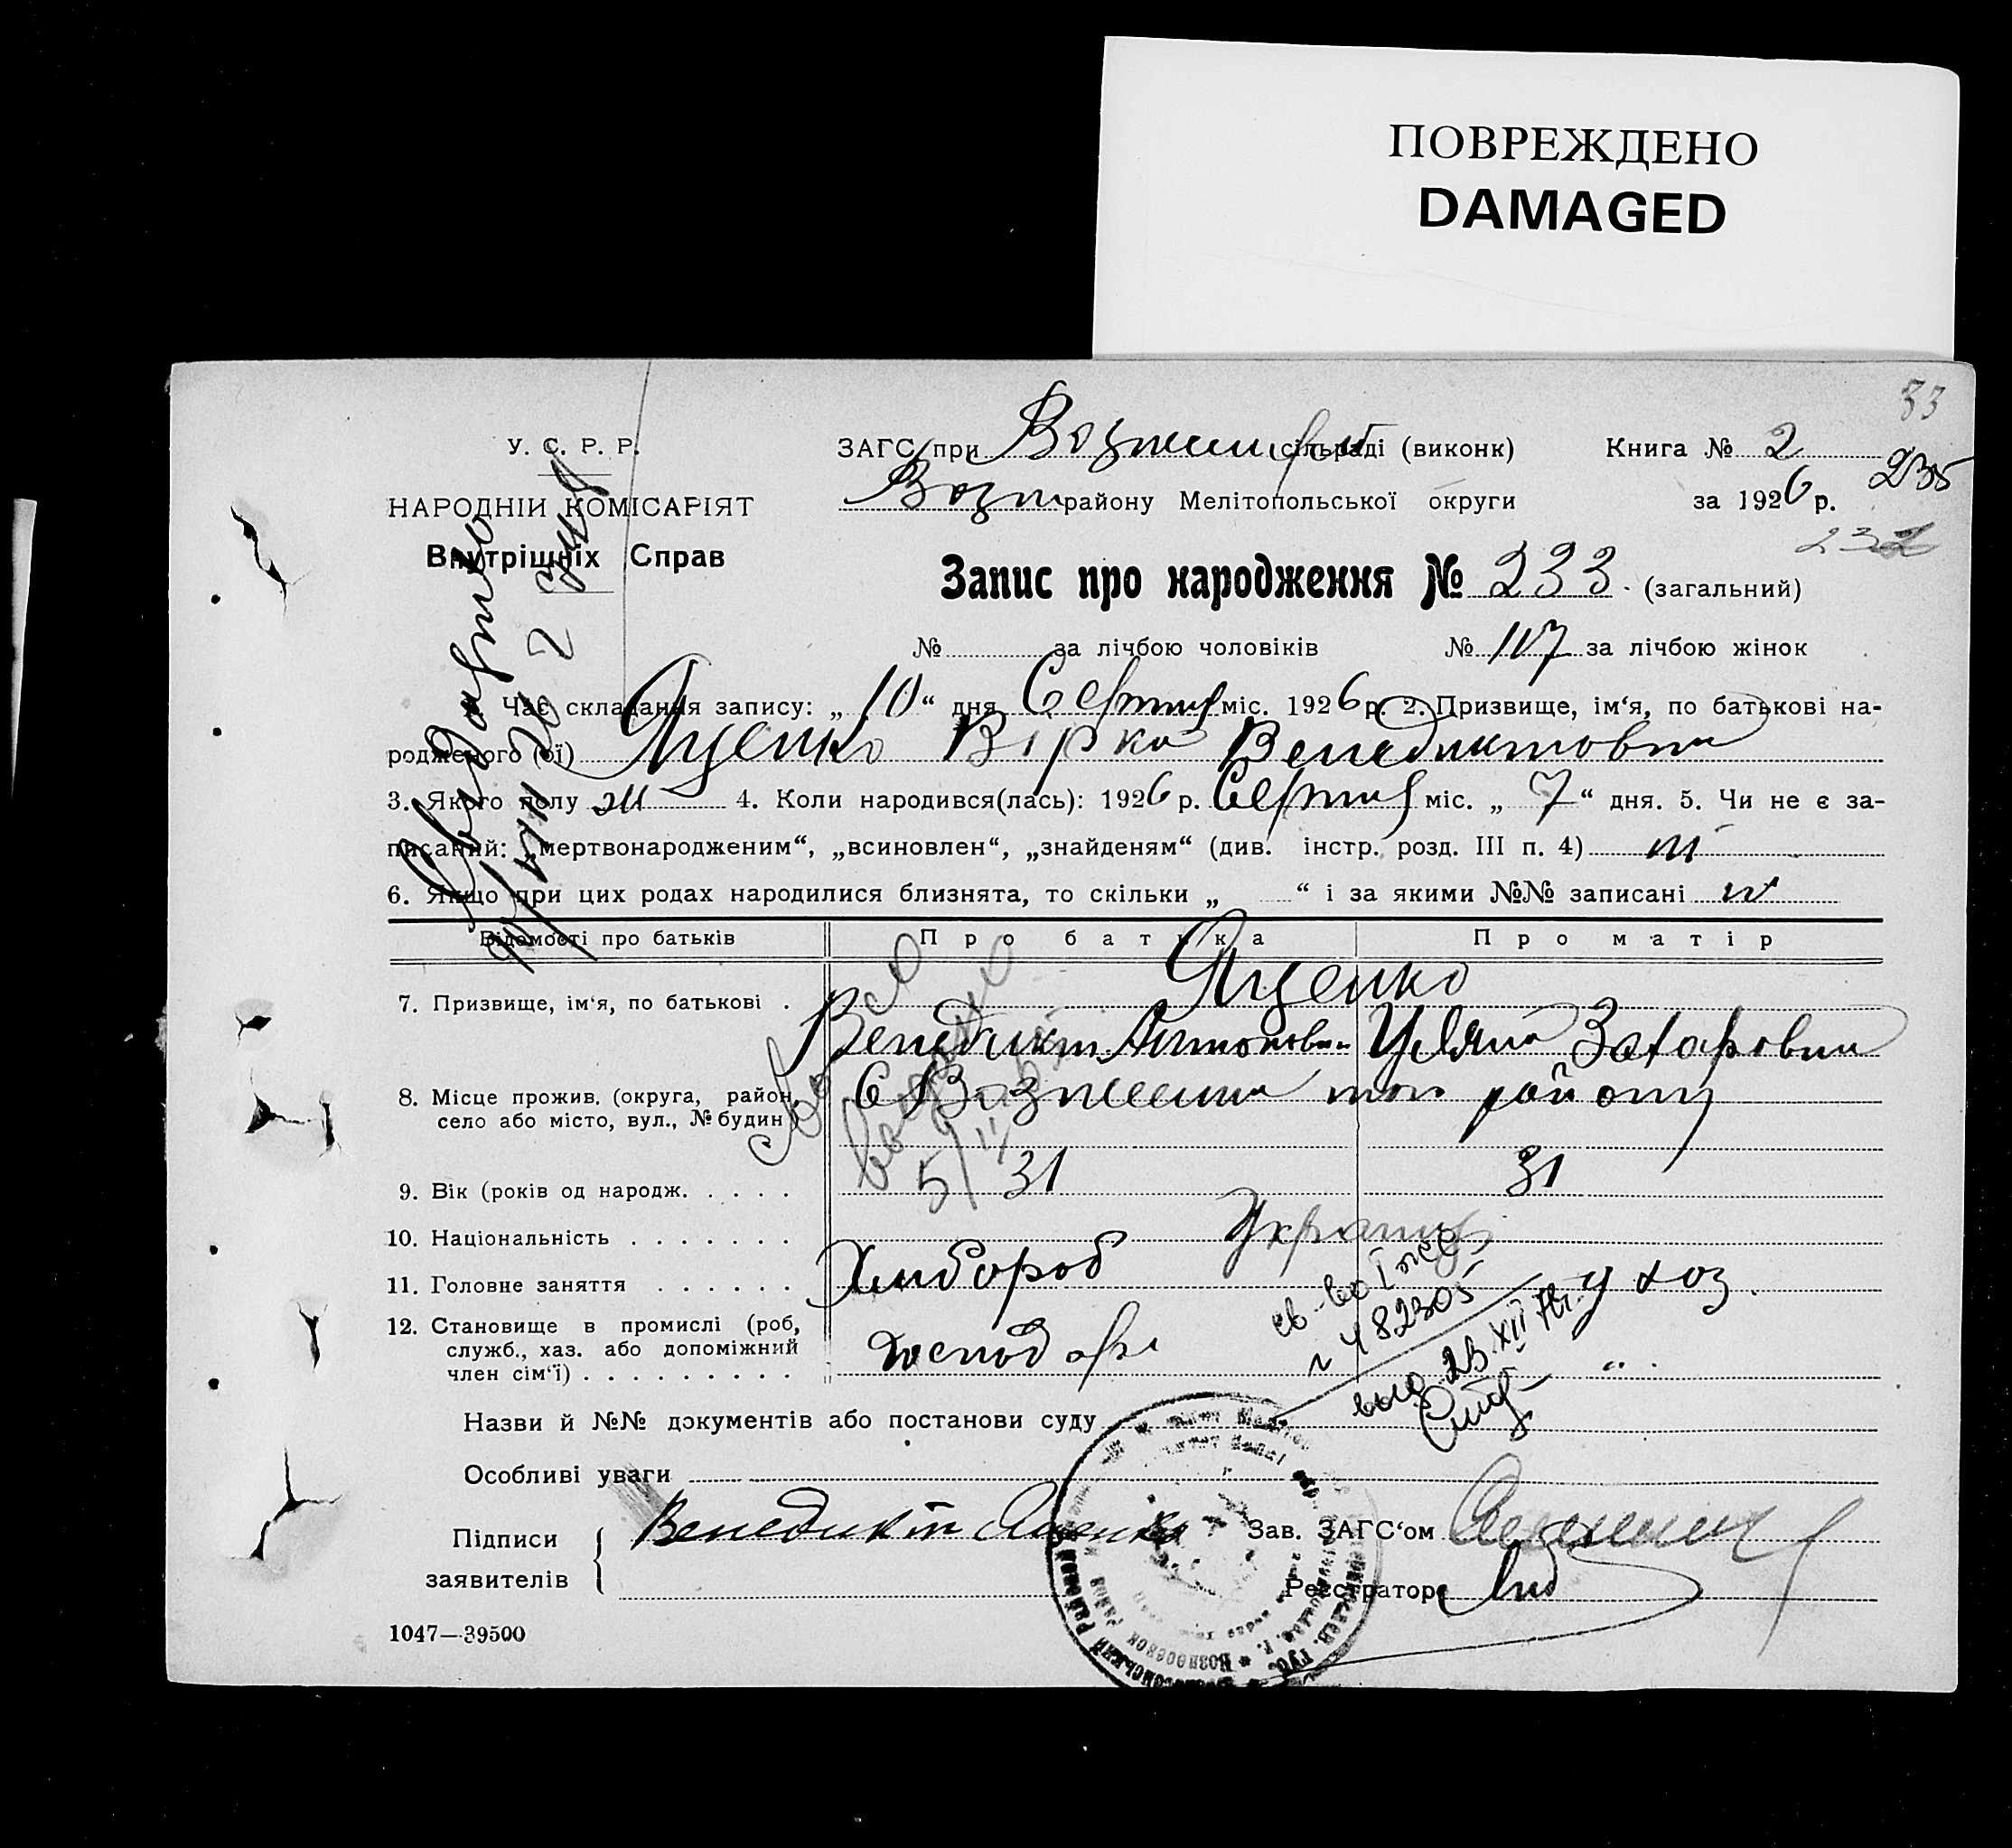 ПОВРЕЖДЕНО
DAMAGED
33
У. С. Р. Р.
НАРОДНІЙ КОМІСАРІЯТ
Внутрішніх Справ
ЗАГС при сільраді (виконк) Книга № 2
235
Возн району Мелітопольської округи за 1926 р.
232
Запис про народження № 233 (загальний)
№ за лічбою чоловіків № 117 за лічбою жінок
1. Час складання запису: „10“ дня міс. 1926 р. 2. Призвище, ім‘я, по батькові на-
родженого (ої) Яценко Вірка Венедиктовна
3. Якого полу ж 4. Коли народився(лась): 1926 р. міс. „7“ дня. 5. Чи не є за-
писаний: „мертвонародженим“, „всиновлен“, „знайденям“ (див. інстр. розд. III п. 4) ні
6. Якщо при цих родах народилися близнята, то скільки „ “ і за якими №№ записані
Відомості про батьків Про батька Про матір
7. Призвище, ім‘я, по батькові . Яценко
Венедикт Антонович Уляна Захаровна
8. Місце прожив. (округа, район,
село або місто, вул., № будин.)
С Вознесенка того району
9. Вік (років од народж. . . . . 31 31
10. Національність . . . . . . . Украинці
11. Головне заняття . . . . . . Хлібороб у хоз.
12. Становище в промислі (роб,
служб., хаз. або допоміжний
член сім‘ї) . . . . . . . . . господар „
св-во І
№ 482305
выд. 23.XII
Назви й №№ документів або постанови суду
Особливі уваги
Підписи
заявителів
Венедикт Яценко
Зав. ЗАГС‘ом
Реєстратор
1047—39500